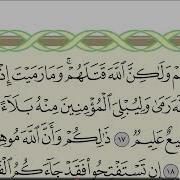 وَلَٰكِنَّ ٱللَّهَ قَتَلَهُمْ ۚ وَمَا رَمَيْتَ إِذْ
رَمَىٰ وَلِيُبْلِيَ ٱلْمُؤْمِنِينَ مِنْهُ بَلَآءً
عَلِيمٌ ١٧ ذَٰلِكُمْ وَأَنَّ ٱللَّهَ
١٨ إِن تَسْتَفْتِحُوا۟ فَقَدْ جَآءَكُمُ